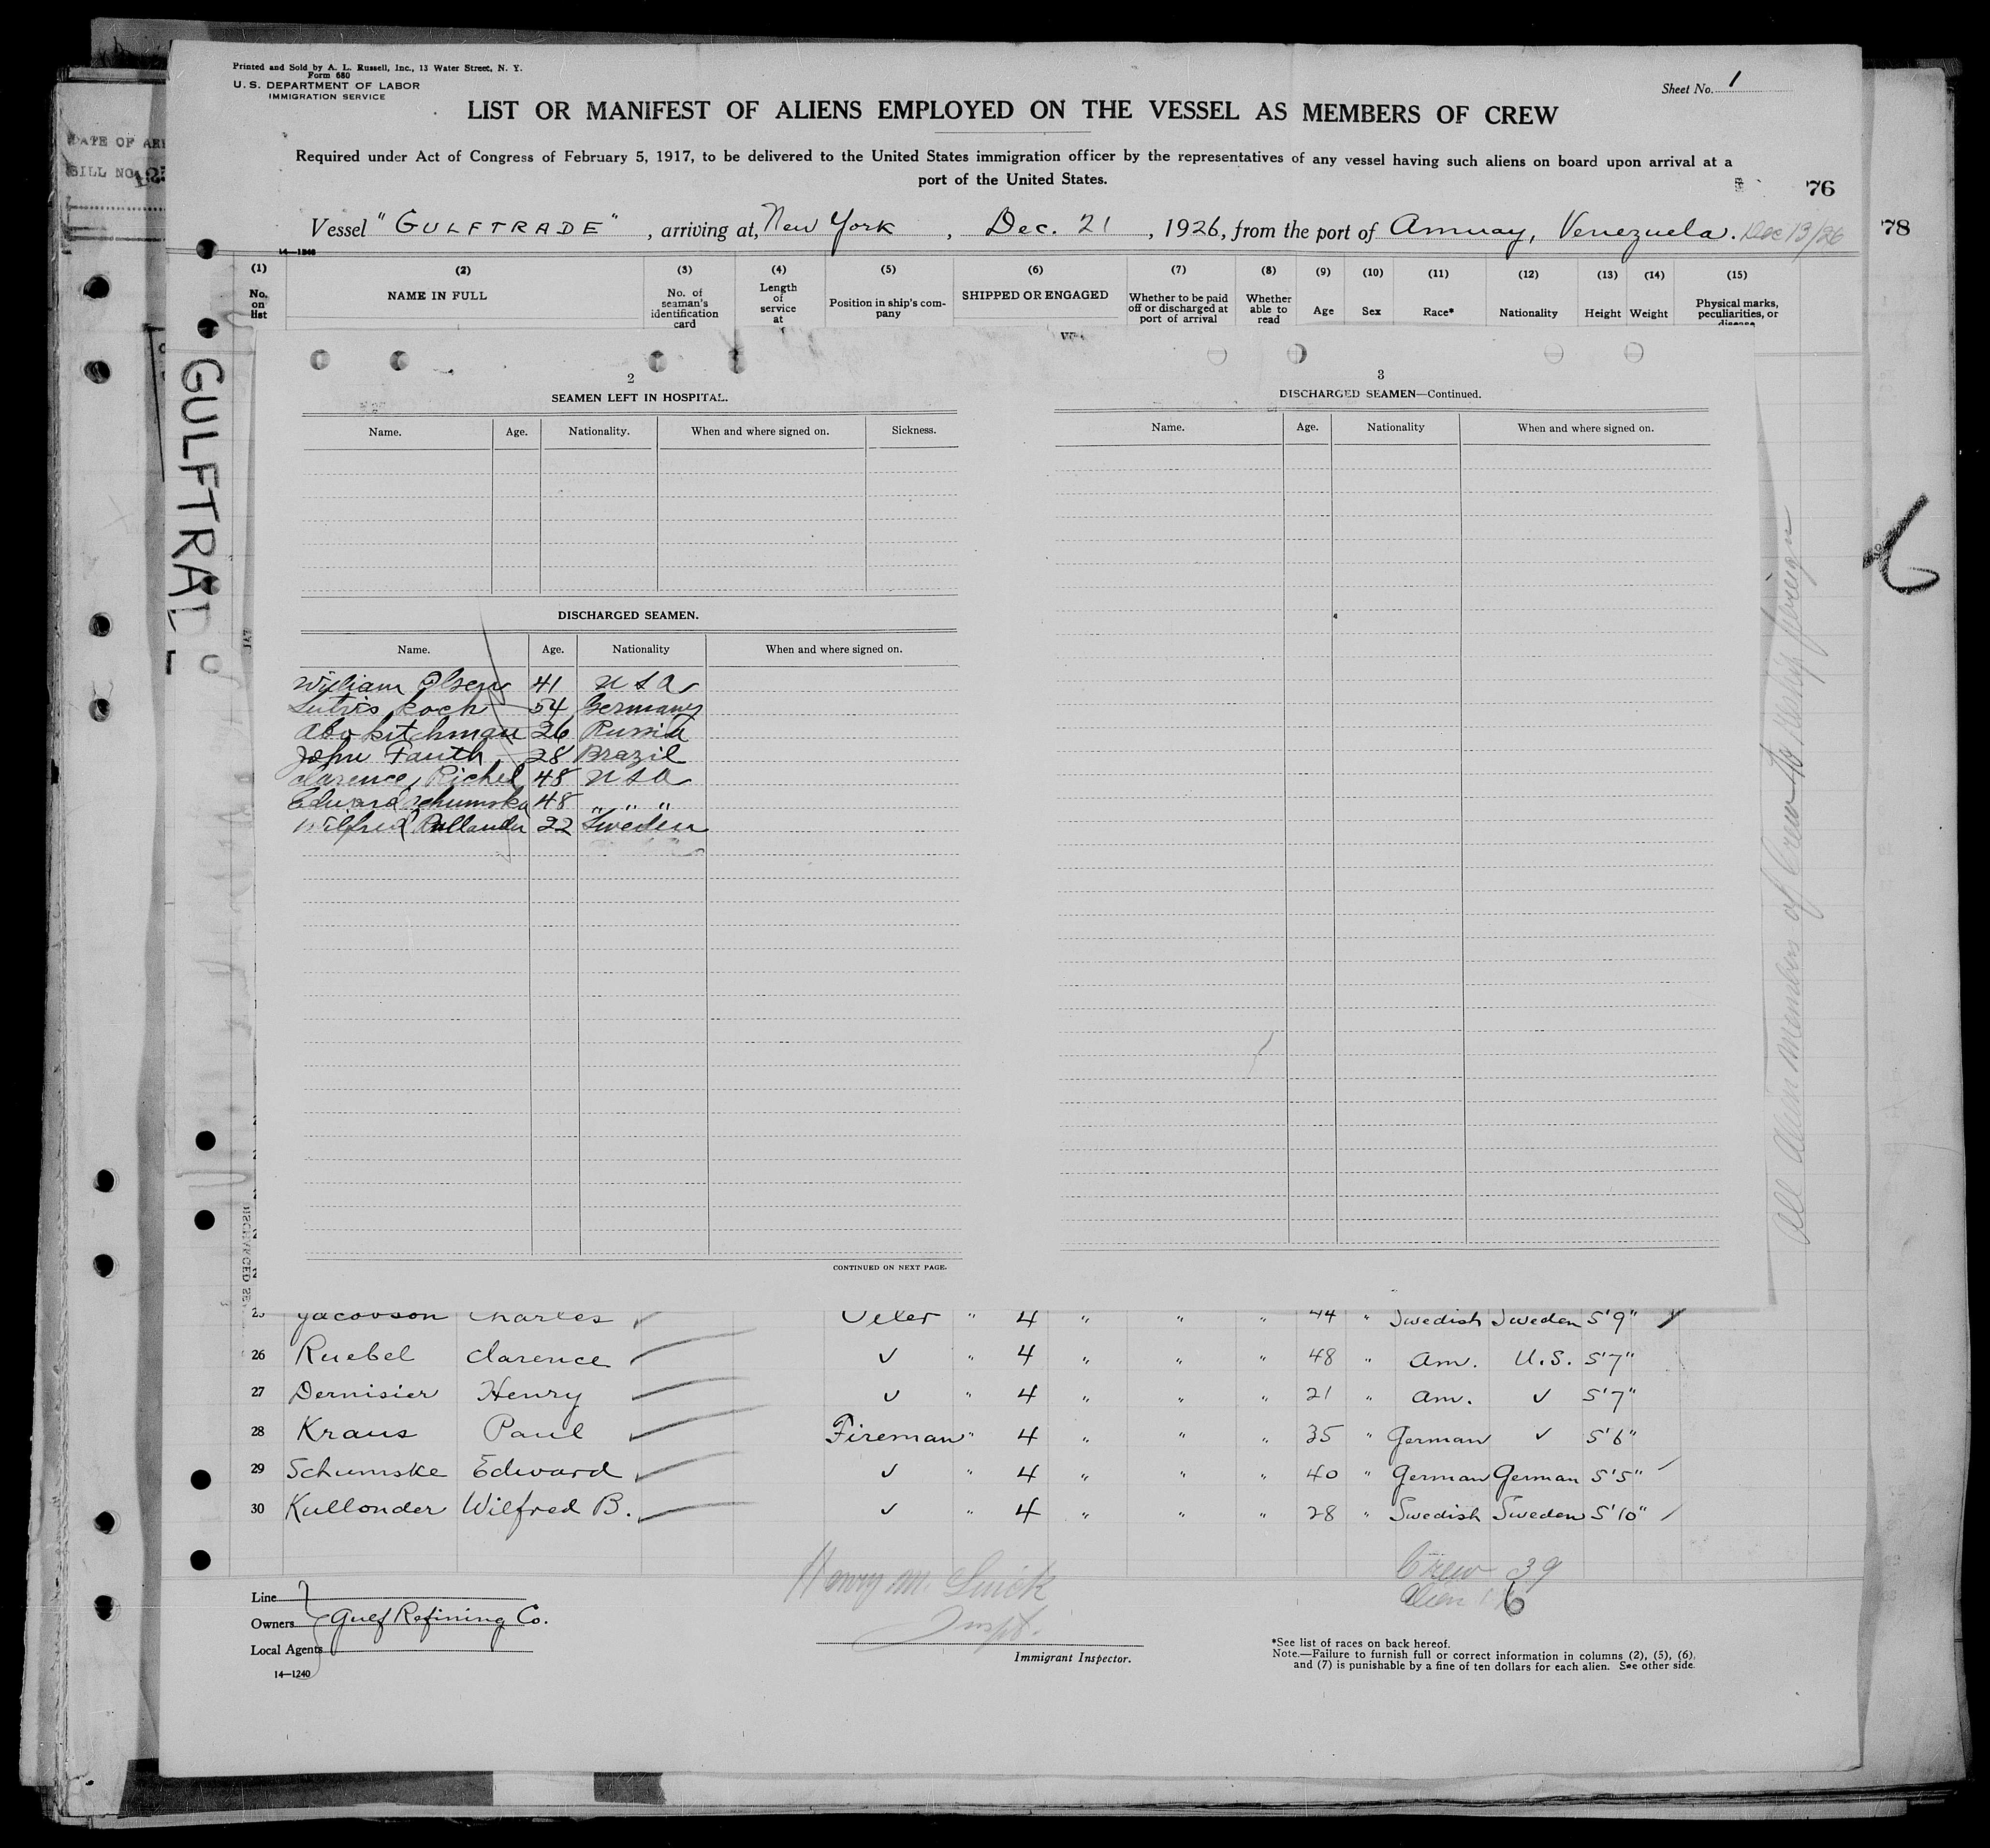 Printed and Sold by A. L. Russell, Inc., 13 Water Street, N. Y.
Form 680
U. S. DEPARTMENT OF LABOR
IMMIGRATION SERVICE
Sheet No. 1
LIST OR MANIFEST OF ALIENS EMPLOYED ON THE VESSEL AS MEMBERS OF CREW
Required under Act of Congress of February 5, 1917, to be delivered to the United States immigration officer by the representatives of any vessel having such aliens on board upon arrival at a
port of the United States.
76
78
Vessel "GULFTRADE", arriving at, New York, Dec. 21, 1926, from the port of Amuay, Venezuela. Dec 13/26
14—1240
(1) (2) (3) (4) (5) (6) (7) (8) (9) (10) (11) (12) (13) (14) (15)
No. on list
NAME IN FULL
No. of seaman's identification card
Length of service at
Position in ship's company
SHIPPED OR ENGAGED
Whether to be paid off or discharged at port of arrival
Whether able to read
Age
Sex
Race*
Nationality
Height
Weight
Physical marks, peculiarities, or disease
DATE OF
BILL NO.
GULFTRAD
2
SEAMEN LEFT IN HOSPITAL.
Name. Age. Nationality. When and where signed on. Sickness.
DISCHARGED SEAMEN.
Name. Age. Nationality When and where signed on.
William Olsen 41 U S A
Koch 54 Germany
Abo Kitchman 26 Russia
John Fauth 28 Brazil
Clarence Richel 48 U S A
Edward Schumska 48 " " "
Wilfred Kullander 22 Sweden
CONTINUED ON NEXT PAGE.
3
DISCHARGED SEAMEN—Continued.
Name. Age. Nationality When and where signed on.
All Alien Members of Crew to foreign
6
25 Jacobson Charles Oiler " 4 " " " 44 " Swedish Sweden 5'9"
26 Ruebel Clarence ✓ " 4 " " " 48 " Am. U.S. 5'7"
27 Dernisier Henry ✓ " 4 " " " 21 " Am. ✓ 5'7"
28 Kraus Paul Fireman " 4 " " " 35 " German ✓ 5'6"
29 Schumske Edward ✓ " 4 " " " 40 " German German 5'5"
30 Kullonder Wilfred B. ✓ " 4 " " " 28 " Swedish Sweden 5'10"
Crew 39
Alien 16
Henry M.
Inspt.
Line
Owners Gulf Refining Co.
Local Agents
14—1240
Immigrant Inspector.
*See list of races on back hereof.
Note.—Failure to furnish full or correct information in columns (2), (5), (6),
and (7) is punishable by a fine of ten dollars for each alien. See other side.